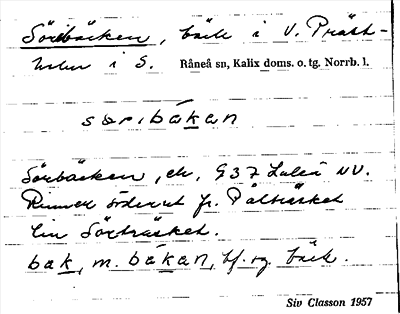 Sörbäcken, bäck i V. Präst-
holm i S. Råneå sn, Kalix doms. o. tg. Norrb. l.
sörbäkan
Sörbäcken, ek. 93 7 Luleå NV.
Rinner söderut fr. Pålträsket
till Sörträsket.
bäk, m. bäkan, bf. sg. bäck.
Siv Classon 1957